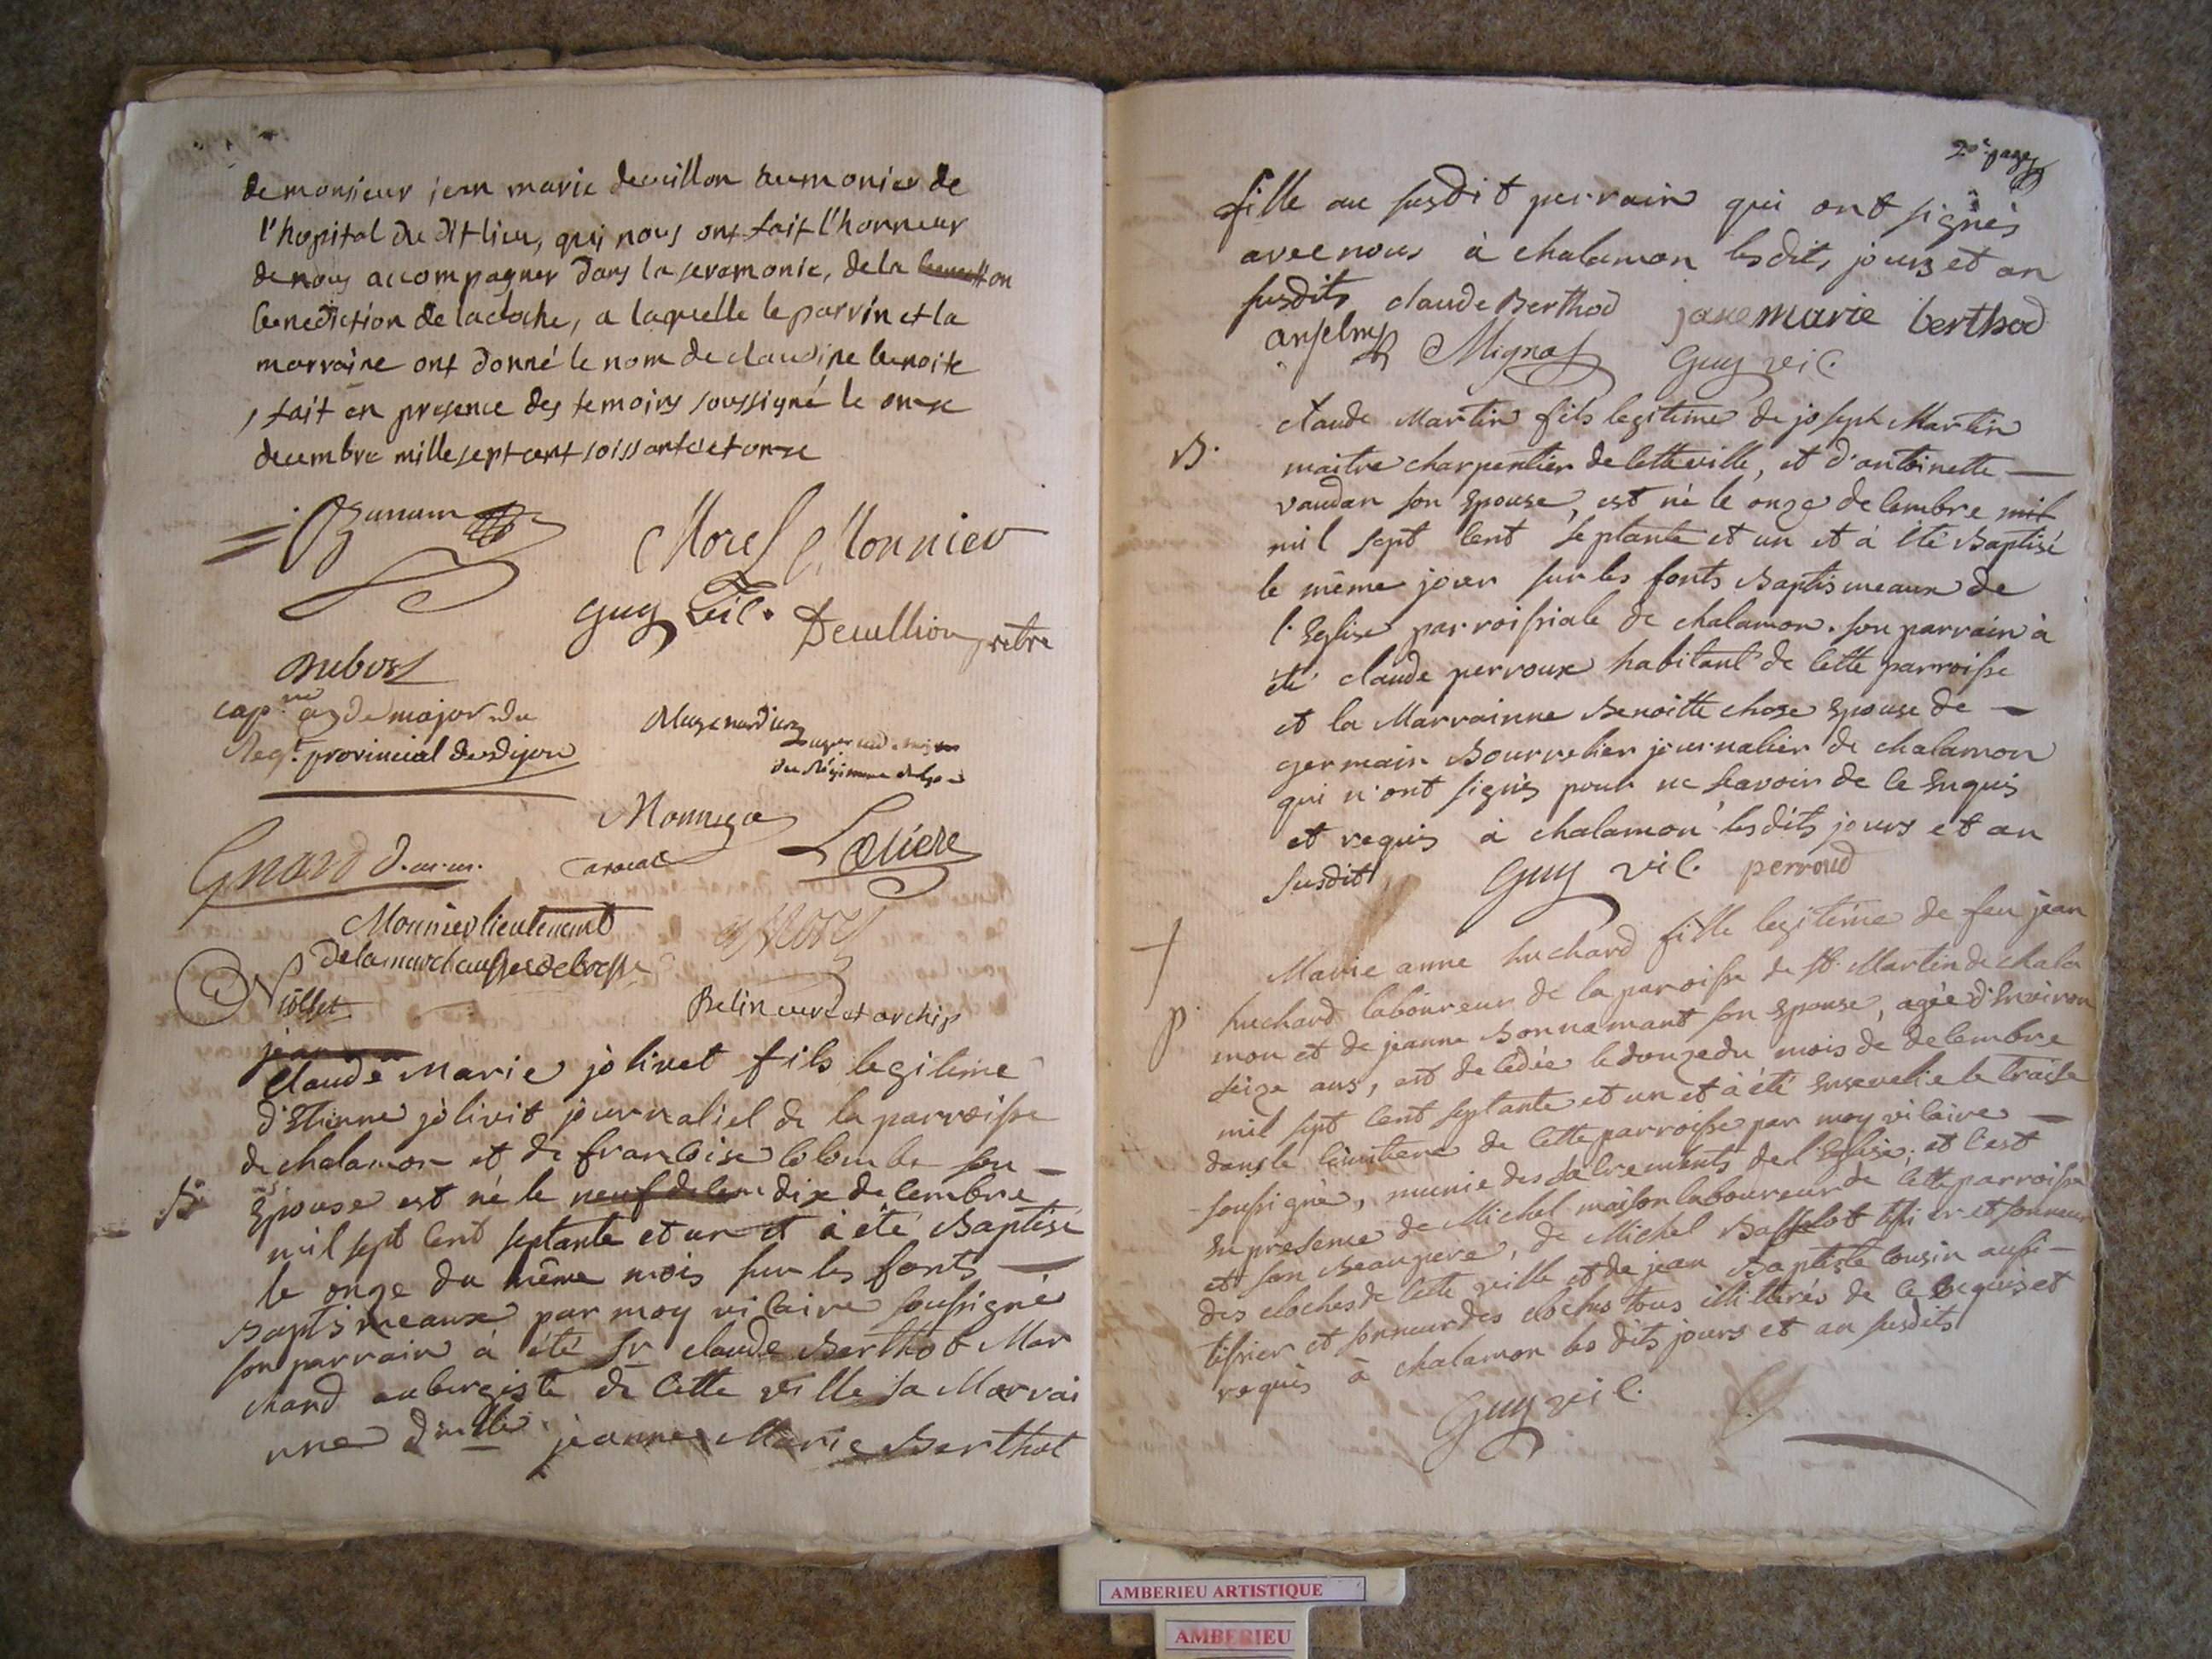 de monsieur jean marie decuillon aumonier de
l'hopital du dit lieu, qui nous ont fait l'honneur
de nous accompagner dans la seremonie, de la
benediction de la cloche, a laquelle le parrin et la
marraine ont donné le nom de claudine benoite
, fait en presence des temoins soussigné le onze
decembre mille sept cent soissante et onze
Ozanam
Morel Monnier
Guy vic. Decullion pretre
Dubost
cap.ne ayde major du
Reg.t provincial de dijon
du Régiment
Monnier
avocat
Lalliere
Girard d.m.m.
Monnier lieutenent
de la marechaussee de bresse
Niollet
Belin curé et archip
jean
claude Marie jolivet fils legitime
d'Etienne jolivit journaliel de la parroisse
de chalamon et de francoise colombe son
B. Epouse est né le neuf de cem dix decembre
mil sept cent septante et un et à été Baptisé
le onze du même mois sur les fonts
Baptismeaux par moy vicaire soussigné
son parrain à été Sr claude Berthot Mar
chand aubergiste de cette ville sa Marrai
nne dlle jeanne Marie Berthot
2e page
fille au susdit perrain qui ont signés
avec nous à chalamon lesdits jours et an
susdits claude Berthod jane marie berthod
anselme Mignot Guy vic.
claude Martin fils legitime de joseph Martin
B. maitre charpentier de cette ville, et d'antoinette
vaudan son Epouse, est né le onze decembre mil
mil sept cent septante et un et à été Baptisé
le même jour sur les fonts Baptismeaux de
l'Eglise parroissiale de chalamon. son parrain à
été claude perroux habitant de cette parroisse
et la Marrainne Benoitte chose Epouse de
germain Bourrelier journalier de chalamon
qui n'ont signés pour ne scavoir de ce Enquis
et requis à chalamon lesdits jours et an
susdits Guy vic. perroud
Marie anne huchard fille legitime de feu jean
p. huchard laboureur de la paroisse de St. Martin de chala
mon et de jeanne Bonnamant son Epouse, agée d'Environ
seize ans, est decedée le douze du mois de decembre
mil sept cent septante et un et à été Ensevelie le traise
dans le cimitiere de cette parroisse par moy vicaire
soussigné, munie des sacrements de l'Eglise; et c'est
En presence de Michel maison laboureur de cette parroisse
et son Beaupere, de Michel Basselot tissier et sonneur
des cloches de cette ville et de jean Baptiste cousin aussi
tissier et sonneur des cloches tous illitterés de ce Enquis et
requis à chalamon les dits jours et an susdits
Guy vic.
AMBERIEU ARTISTIQUE
AMBERIEU